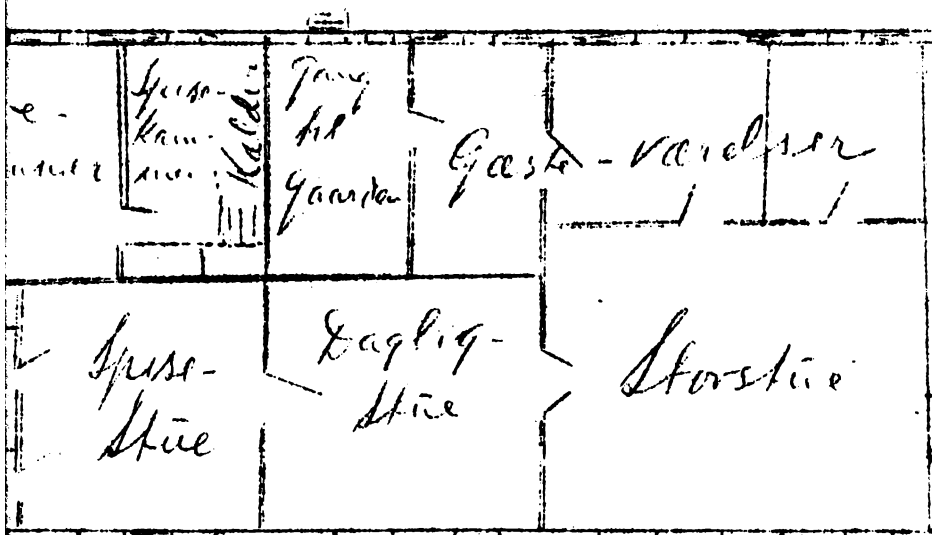 Spise-
kam-
mer
Kælder
Gang
til
Gaarden
Gæste-værelser
Spise-
Stue
Daglig-
Stue
Storstue